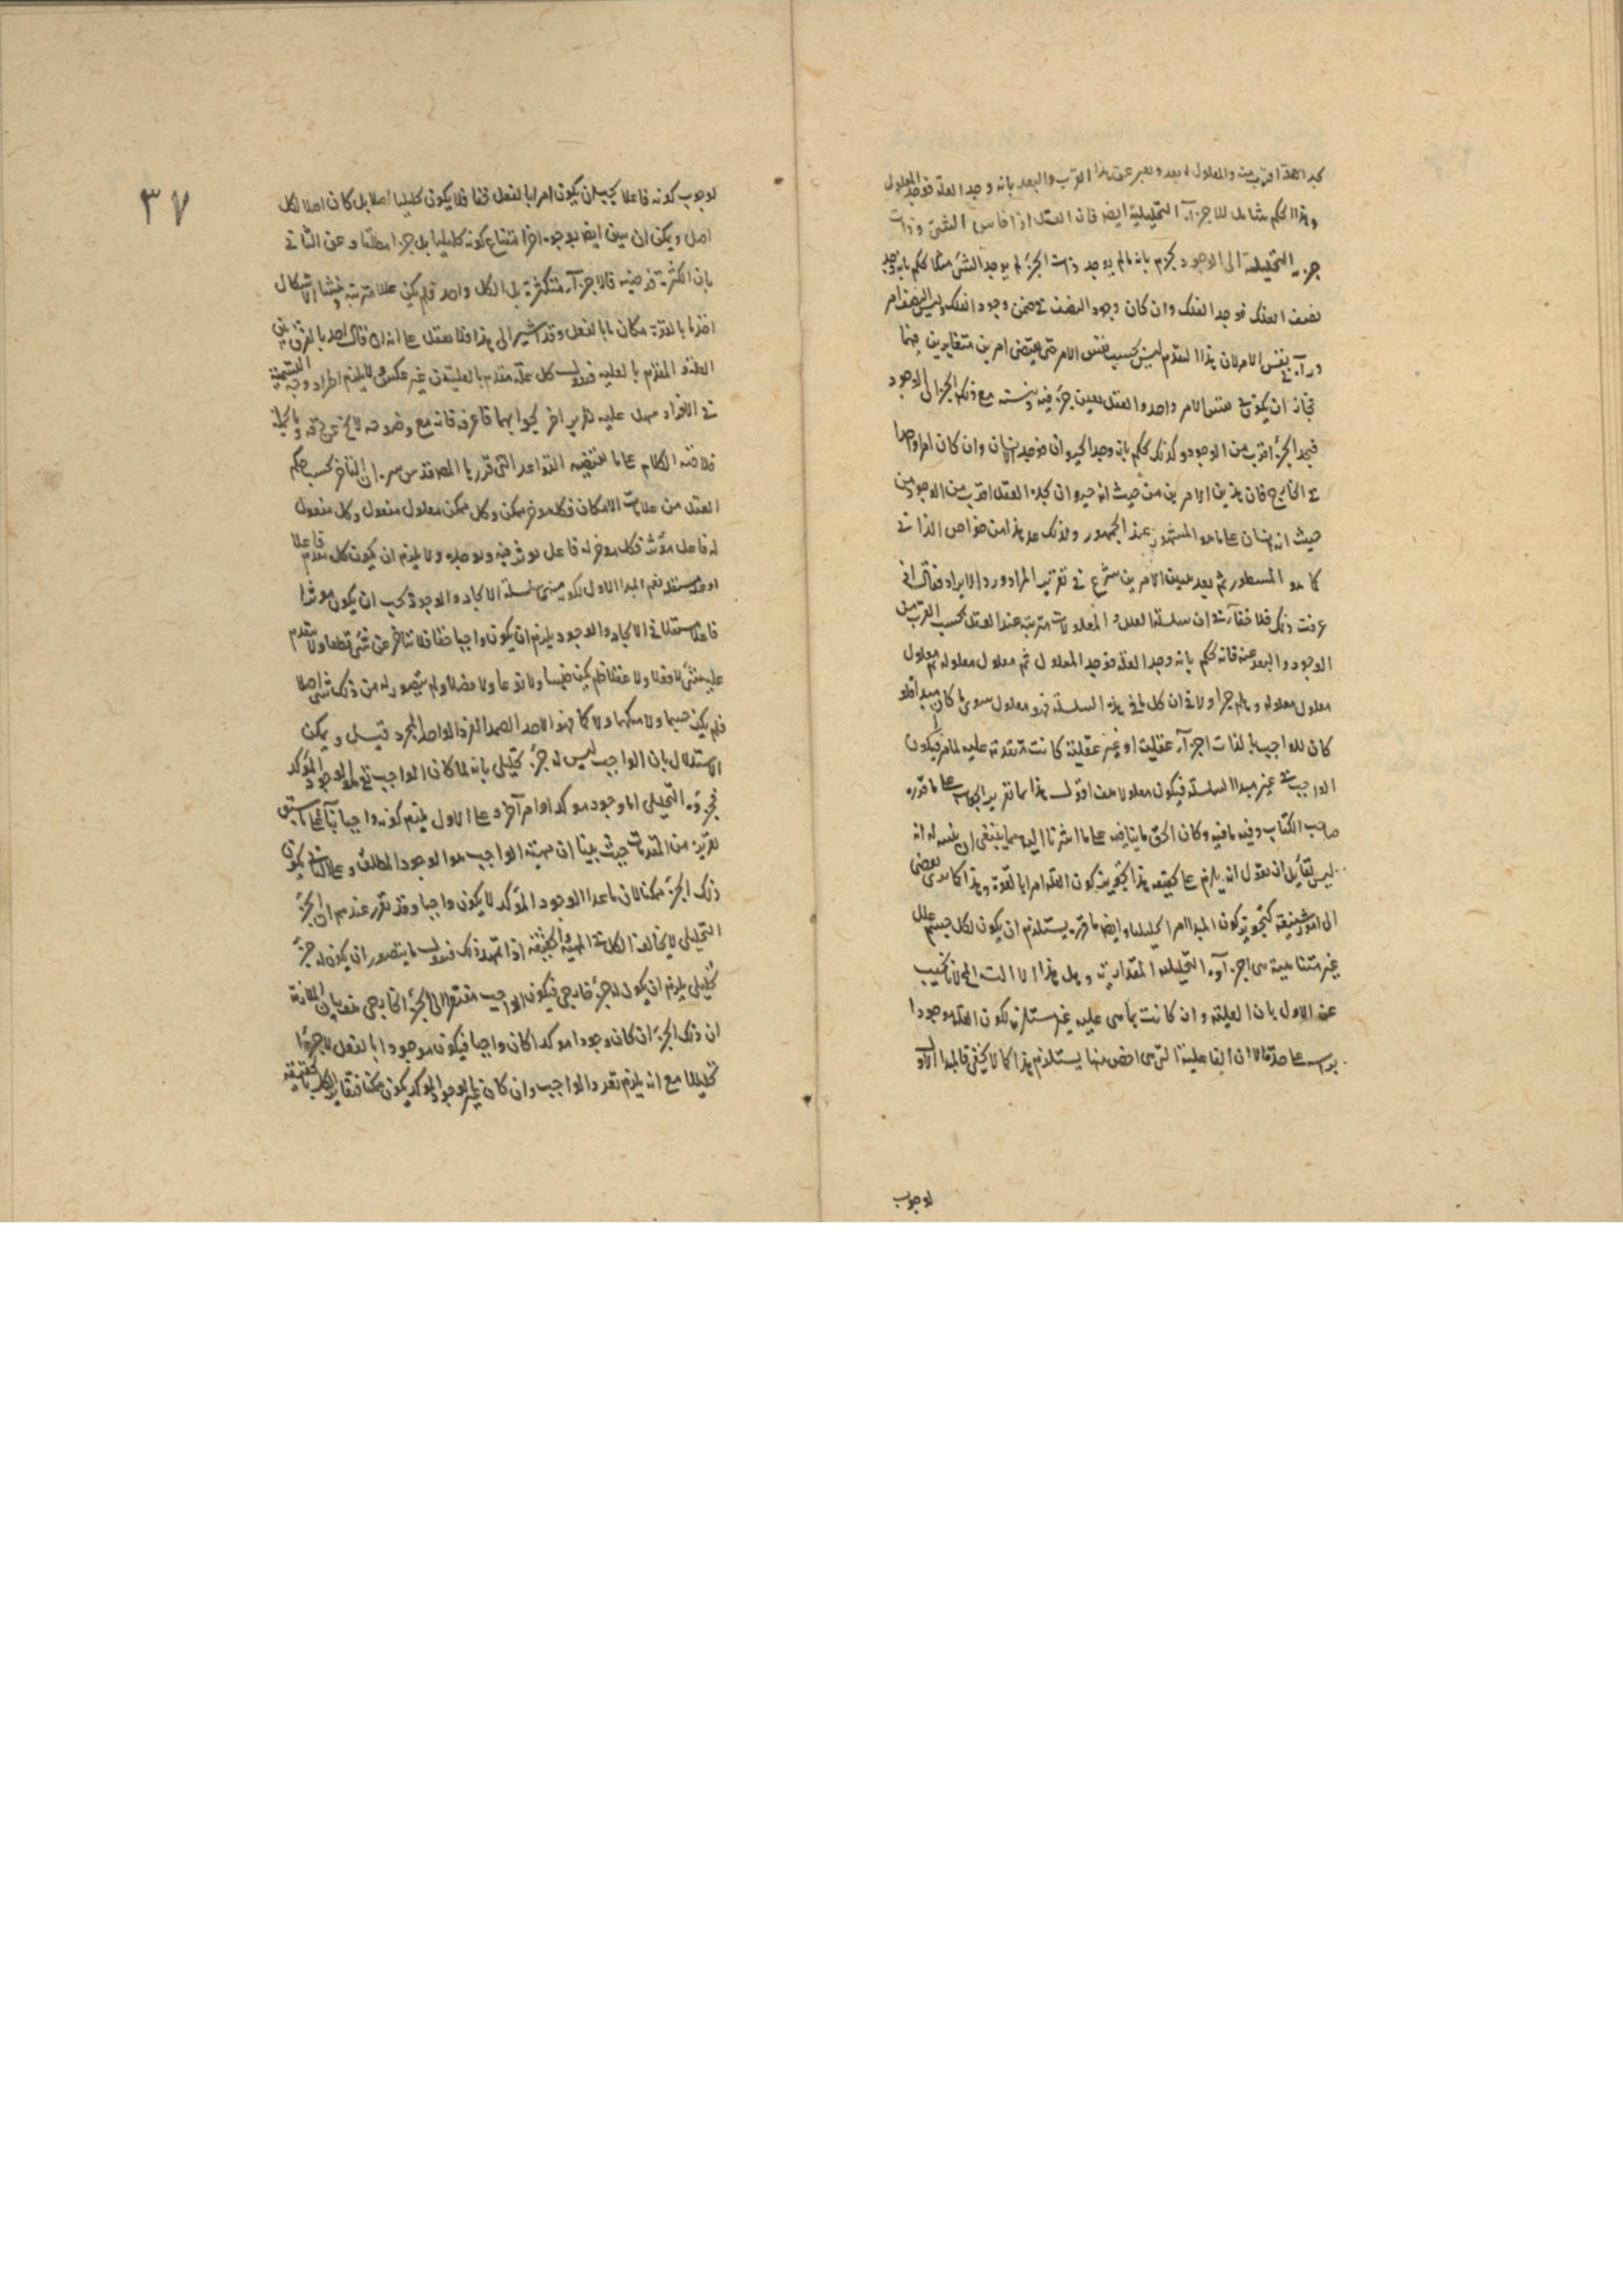 يجد العلة اقرب منه والمعلول ابعد ويعبر عن هذا القرب والبعد بانه وجد العلة فوجد المعلول
وهذا الحكم شامل للاجزاء التحليلية ايضا فان العقل اذا قاس الشئ وذات
جزءه التحليلية الى الوجود يجزم بانه ما لم يوجد ذات الجزء لم يوجد الشئ مثلا يحكم بانه وجد
نصف الفلك فوجد الفلك وان كان وجود النصف في ضمن وجود الفلك وليس النصف امر
وراءه في نفس الامر لان هذا التقدم ليس بحسب نفس الامر حتى يقتضى امرين متغايرين فيها
فجاز ان يكون في نفس الامر واحد والعقل يعين جزء فيه وينسبه مع ذلك الجزء الى الوجود
فيجد الجزء اقرب من الوجود وكذلك يحكم بانه وجد الحيوان فوجد الانسان وان كان امرا واحدا
في الخارج فان هذين الامرين من حيث انه حيوان يجده العقل اقرب من الوجود من
حيث انه انسان على ما هو المشهور عند الجمهور ولذلك عد هذا من خواص الذاتي
كما هو المسطور ثم بعد تبيين الامرين شرع في تقريب المراد ورد الايراد فقال اذا
عرفت ذلك فلا خفاء في ان سلسلة العلل والمعلولات مترتبة عند العقل بحسب القرب من
الوجود والبعد عنه فانه يحكم بانه وجد العلة فوجد المعلول ثم معلول معلوله ثم معلول
معلول معلوله وهلم جرا ولا في ان كل ما في هذه السلسلة فهو معلول سوى ما كان مبدا فلو
كان للواجب بالذات اجزاء عقلية او غير عقلية كانت متقدمة عليه لما مر فيكون
الواجب في غير مبدا السلسلة فيكون معلولا هف اقول هذا ما تقرير الجواب على ما قرره
صاحب الكتاب وفيه ما فيه وكان الحق ما يناقضه على ما اشرنا اليه مما ينبغى ان ينبه له انه
ليس لقائل ان يقول انه يلزم على تحقيقه هذا تجويز كون العلة امرا بالقوة وهذا كما ترى يفضى
الى امور شنيعة كتجويز كون المبدا امرا تحليليا وايضا ما قرره يستلزم ان يكون لكل جسم علل
غير متناهية هى اجزاؤه التحليلية المقدارية وهل هذا الا الت المج لانا نجيب
عن الاول بان العلية وان كانت بما هى علية غير مستلزمة لكون العلة موجودا
براسه على حدة الا ان الفاعلية التى هى اخص منها يستلزم هذا كما لا يخفى فالمبدا الاول
لوجوب
٣٧
لوجوب كونه فاعلا يجب ان يكون امرا بالفعل حقا فلا يكون تحليليا اصلا بل كان اصلا لكل
اصل ويمكن ان يبين ايضا بوجوه اخر امتناع كونه تحليليا بل جزءا مطلقا وعن الثاني
بان الكثرة فرضية فالاجزاء متكثرة بل الكل واحد فلم يكن عللا مترتبة ومنشا الاشكال
اخذ ما بالقوة مكان ما بالفعل وقد اشير الى هذا فلا تعقل على انه ان قال احد بالفرق بين
العلة والمتقدم بالعلية فنقول كل علة متقدم بالعلية من غير عكس ولا يلزم اطراد وجه التسمية
في الافراد سهل عليه تقرير اخر لجوابهما فاعرف فانه مع وضوحه لا يخ عن دقة وبالجملة
خلاصة الكلام على ما تقتضيه القواعد التى قررها المصه قدس سره ان التاخر بحسب حكم
العقل من علامات الامكان فكل موخر ممكن وكل ممكن معلول منفعل وكل منفعل
له فاعل موثر فكل موخر له فاعل يوثر فيه ويوجده ولا يلزم ان يكون كل مقدم فاعلا
او مستقلا نعم المبدا الاول لكونه منتهى سلسلة الايجاد والوجود يجب ان يكون موثرا
فاعلا مستقلا في الايجاد والوجود يلزم ان يكون واجبا حقا فلا يتاخر عن شئ قطعا ولا يتقدم
عليه شئ لا فعلا ولا عقلا فلم يكن جنسا ولا نوعا ولا فصلا ولم يتصور له من ذلك شئ اصلا
فلم يكن جسما ولا متكمما ولا كما فهو الاحد الصمد الفرد الواحد المجرد قيل ويمكن
الاستدلال بان الواجب ليس له جزء تحليلى بانه لما كان الواجب تع هو الوجود المؤكد
فجزؤه التحليلى اما وجود موكد او امر آخر وعلى الاول يلزم كونه واجبا بناء على ما سبق
تقريره من المقدمات حيث بينا ان مهية الواجب هو الوجود المطلق وعلى الثاني يكون
ذلك الجزء ممكنا لان ما عدا الوجود المؤكد لا يكون واجبا وقد تقرر عندهم ان الجزء
التحليلى لا يخالف الكل في المهية والحقيقة اذا تمهد ذلك فنقول ما يتصور ان يكون له جزء
تحليلى يلزم ان يكون له جزء خارجى فيكون الواجب مفتقرا الى الجزء الخارجى هف بيان الملازمة
ان ذلك الجزء ان كان وجودا موكدا كان واجبا فيكون موجودا بالفعل لا جزءا
تحليليا مع انه يلزم تعدد الواجب وان كان غير الوجود المؤكد يكون ممكنا فتغاير الكل بالحقيقة